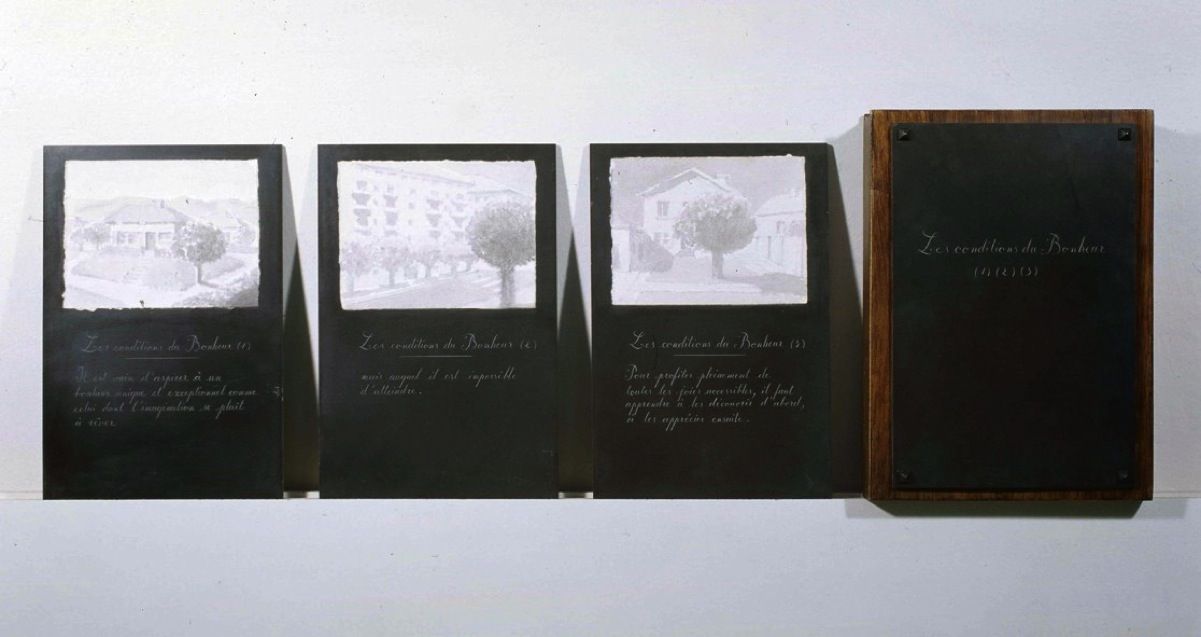 Les conditions du Bonheur (1)
Il est vain d'aspirer à un
bonheur unique et exceptionnel comme
celui dont l'imagination se plaît
à rêver
Les conditions du Bonheur (2)
mais auquel il est impossible
d'atteindre.
Les conditions du Bonheur (3)
Pour profiter pleinement de
toutes les joies accessibles, il faut
apprendre à les découvrir d'abord,
à les apprécier ensuite.
Les conditions du Bonheur
(1) (2) (3)